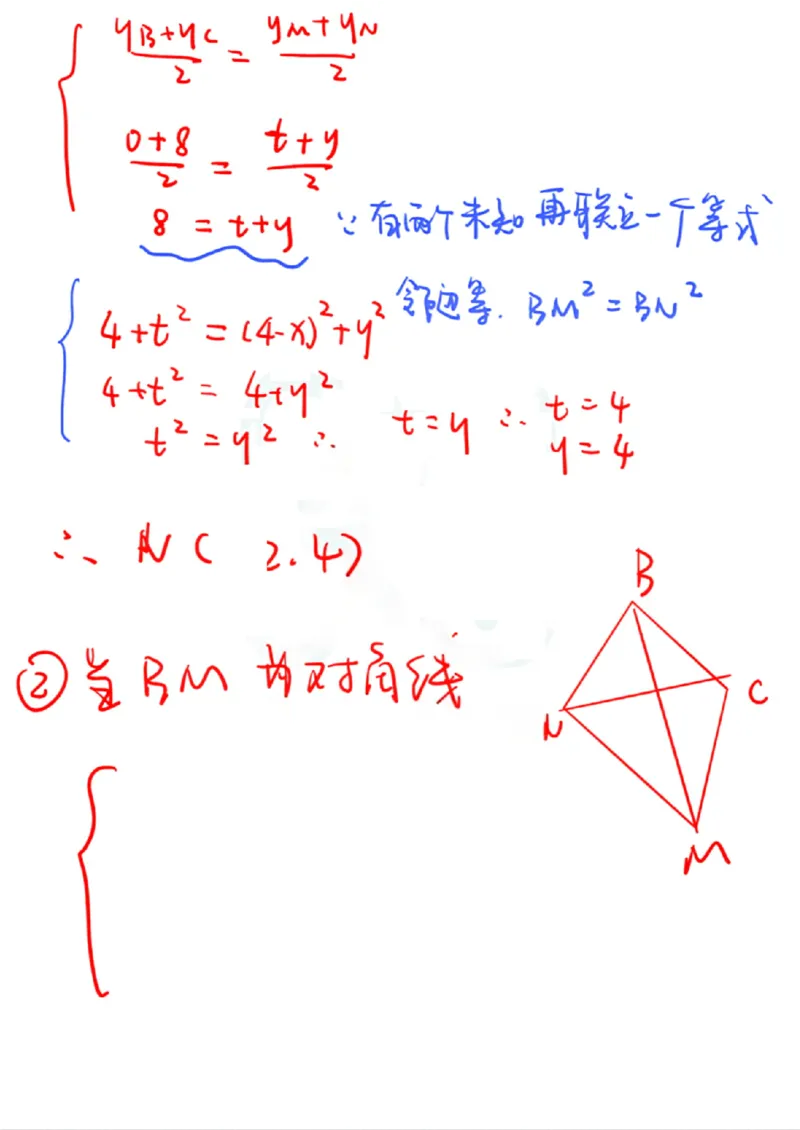 (yB+yC)/2 = (yM+yN)/2
(0+8)/2 = (t+y)/2
8 = t+y ∵有两个未知 再联立一个等式
邻边等. BM²=BN²
4+t² = (4-x)²+y²
4+t² = 4+y²
t² = y² ∴ t=y ∴ t=4
y=4
∴ N( 2.4)
②当BM为对角线
B
C
N
M